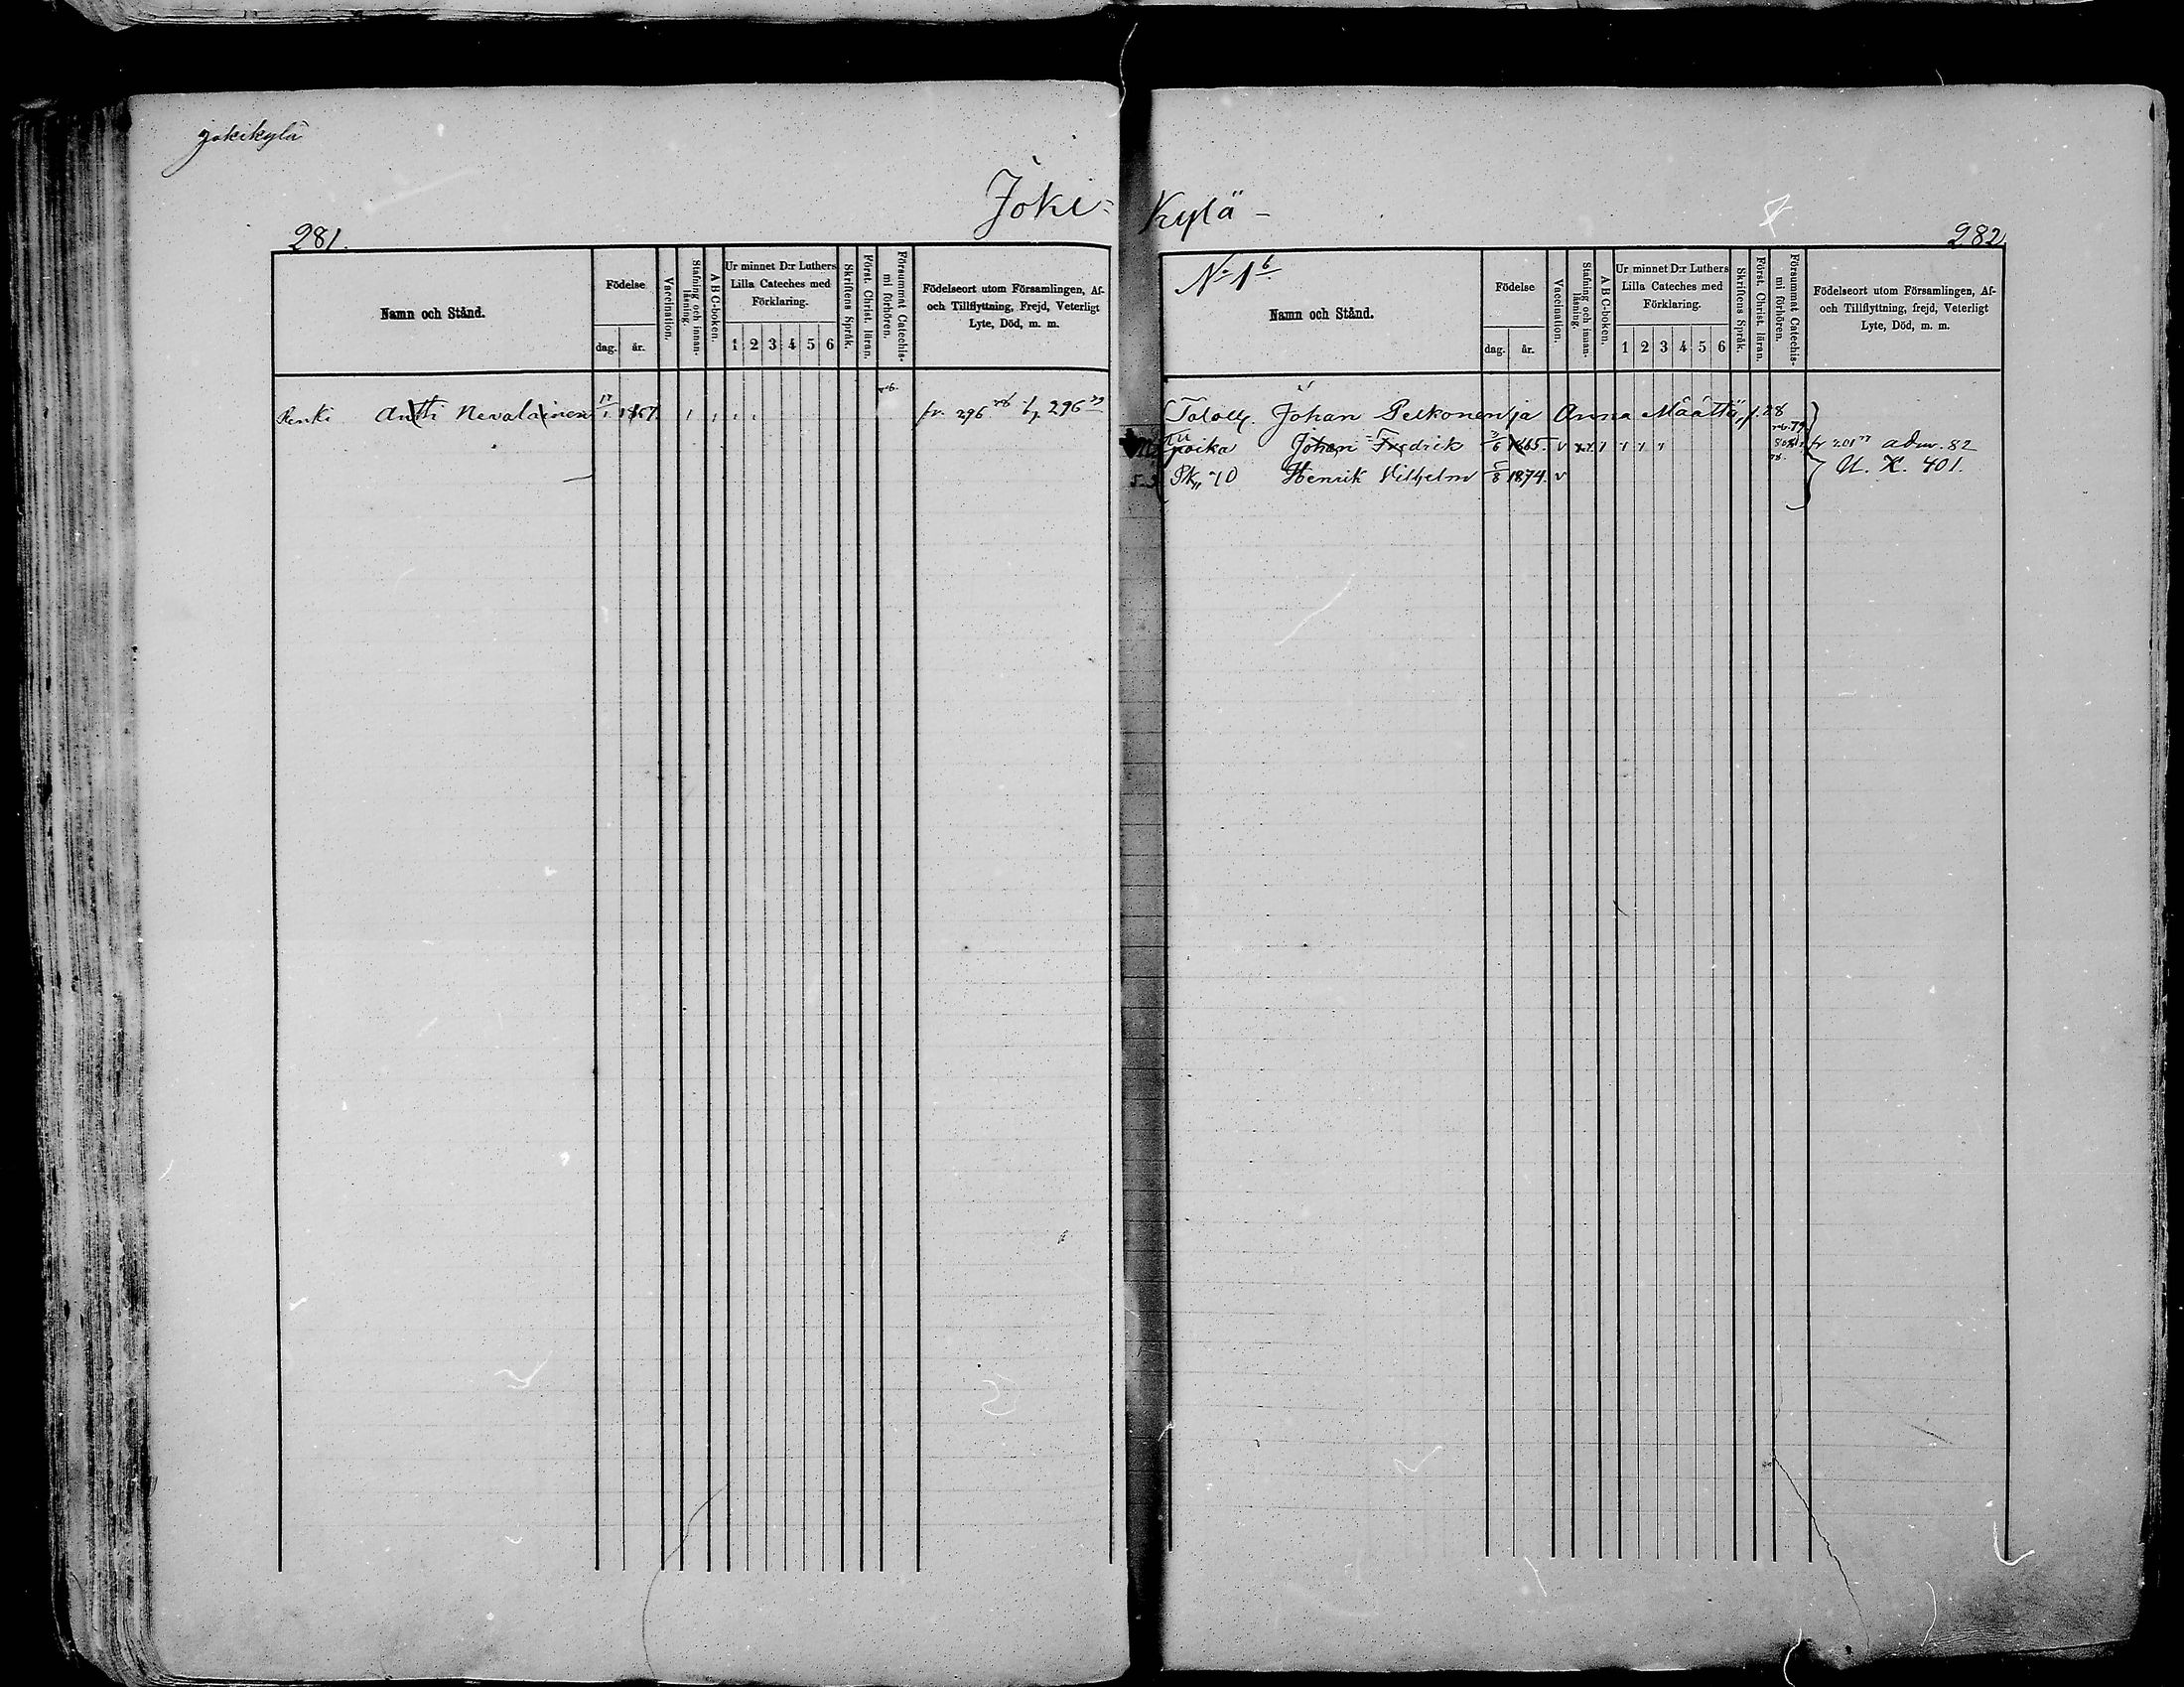 Jokikylä
Joki=
281.
Namn och Stånd.
Födelse
dag. år.
Vaccination.
Stafning och innanläsning.
A B C-boken.
Ur minnet D:r Luthers
Lilla Cateches med
Förklaring.
1 2 3 4 5 6
Skriftens Språk.
Först. Christ. läran.
Försummat Catechismi förhören.
Födelseort utom Församlingen, Af-
och Tillflyttning, Frejd, Veterligt
Lyte, Död, m. m.
Renki Antti Nevalainen 17/1 1857 fr. 296 78 296 79
Kylä -
282
N:o 1 b
Namn och Stånd.
Födelse
dag. år.
Vaccination.
Stafning och innanläsning.
A B C-boken.
Ur minnet D:r Luthers
Lilla Cateches med
Förklaring.
1 2 3 4 5 6
Skriftens Språk.
Först. Christ. läran.
Försummat Catechismi förhören.
Födelseort utom Församlingen, Af-
och Tillflyttning, frejd, Veterligt
Lyte, Död, m. m.
Johan Pelkonen ja Anna Määttä
poika Johan Fredrik 3/6 1865. v adm. 82
Henrik Vilhelm 5/8 1874. v U. K. 401.